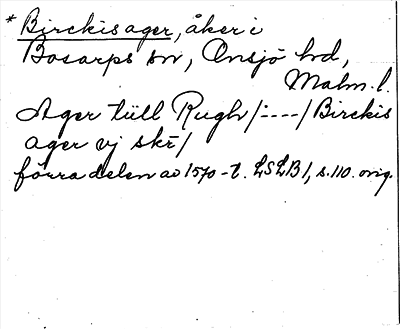 * Birckisager, åker i
Bosarps sn, Onsjö hd,
Malm. l.
Ager tüll Rugh /:----/ Birckis
ager vj skr̄ /
förra delen av 1570-t. LSLB 1, s. 110. orig.